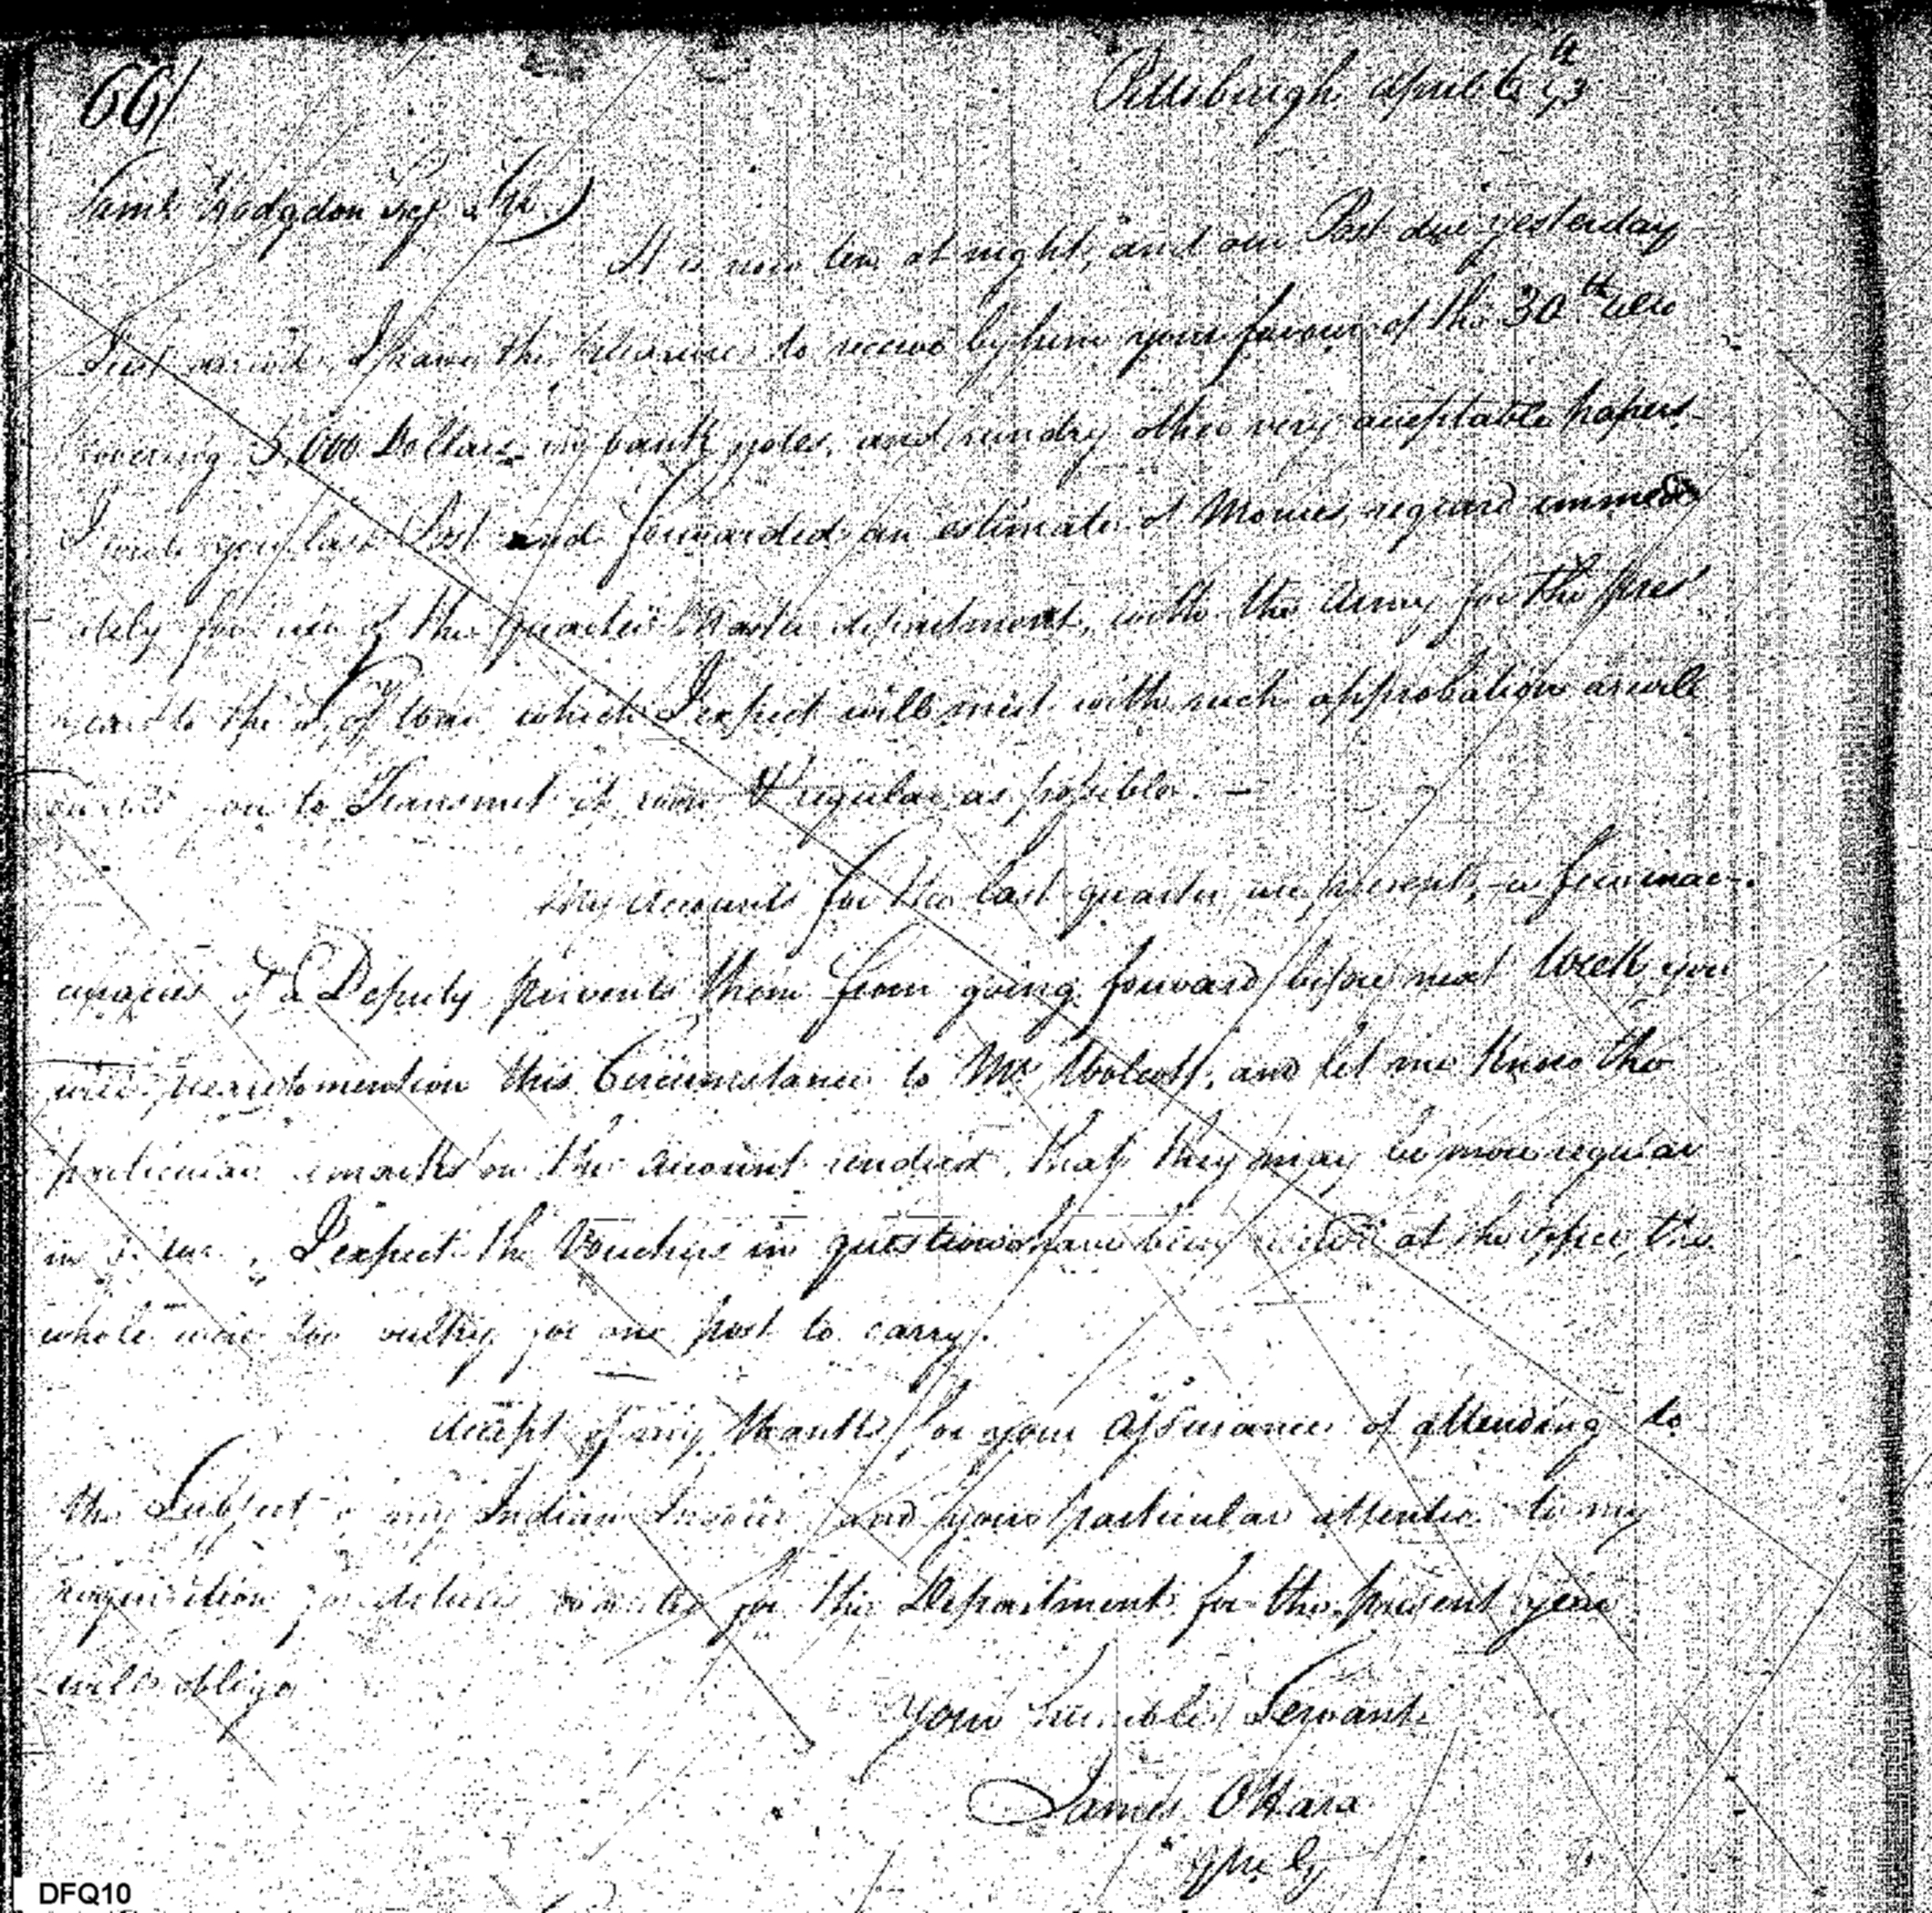 66/
Pittsburgh april 6th 93
Saml Hodgdon
It is now ten at night, and our Post due yesterday
Just arrived, I have the pleasure to receive by him your favour of the 30th ulto
covering 5,000 Dollars in bank notes, and sundry other very acceptable papers
I wrote you last Post and forwarded an estimate of Monies required immedi
ately for use of the Quarter Master department, with the Army for the pres
to the of War which I expect will meet with such approbation as will
you to Transmit it soon & regular as possible. —
My Accounts for the last quarter are a few inac-
curacies of a Deputy prevents them from going forward before next Week, you
will please to mention this Circumstance to Mr Wolcott, and let me know the
particular remarks on the Account rendered, that they may be more regular
in . I expect the Vouchers in question have been at the office, the
whole were too bulky for one post to carry.
Accept of my thanks for your assurance of attending to
the Subject of my Indian and your particular attention to my
requisition for for this Department for the present year
will oblige
Your humble Servant
James OHara